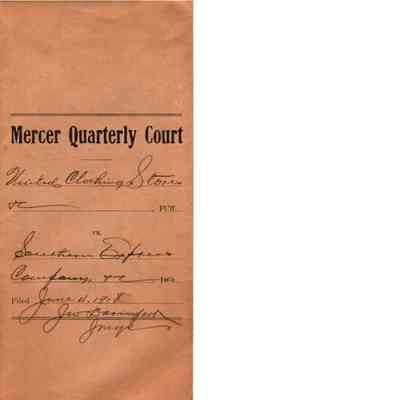 Mercer Quarterly Court
United Clothing Stores
Plff.
vs.
Southern Express
Company, Deft.
Filed June 11, 1918
Jno